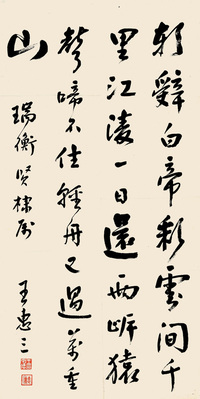 朝辭白帝彩雲間千
里江陵一日還兩岸猿
聲啼不住輕舟已過萬重
山
瑞衡賢棣屬
王惠三